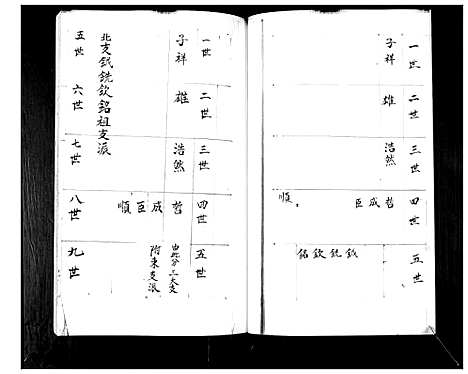 一世 子祥
二世 雄
三世 浩然
四世 哲 成 臣 順
五世 鉞 銑 欽 銘
一世 子祥
二世 雄
三世 浩然
四世 哲 成 臣 順
五世 由此分三大支
附東支派
北支鉞銑欽銘祖支派
五世
六世
七世
八世
九世